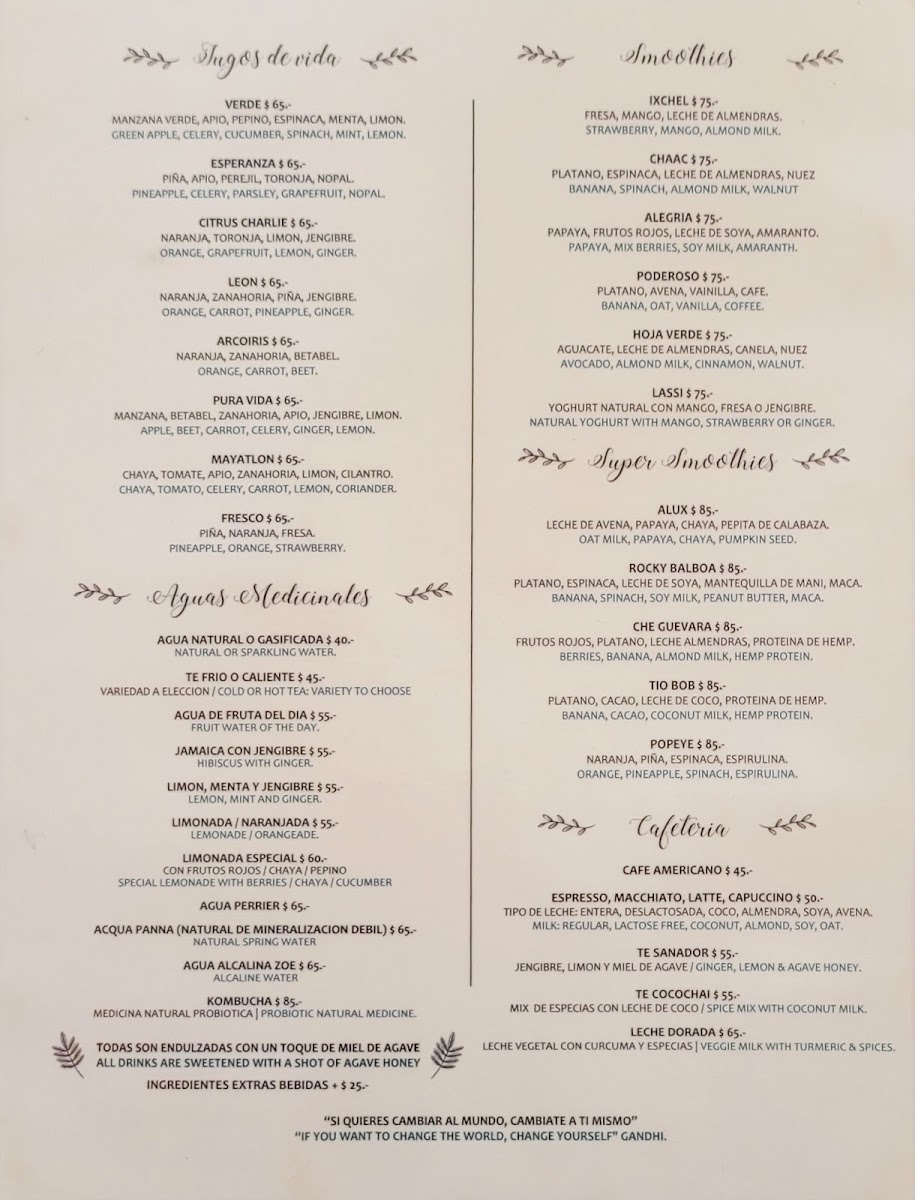 Jugos de vida
VERDE $ 65.-
MANZANA VERDE, APIO, PEPINO, ESPINACA, MENTA, LIMON.
GREEN APPLE, CELERY, CUCUMBER, SPINACH, MINT, LEMON.
ESPERANZA $ 65.-
PIÑA, APIO, PEREJIL, TORONJA, NOPAL.
PINEAPPLE, CELERY, PARSLEY, GRAPEFRUIT, NOPAL.
CITRUS CHARLIE $ 65.-
NARANJA, TORONJA, LIMON, JENGIBRE.
ORANGE, GRAPEFRUIT, LEMON, GINGER.
LEON $ 65.-
NARANJA, ZANAHORIA, PIÑA, JENGIBRE.
ORANGE, CARROT, PINEAPPLE, GINGER.
ARCOIRIS $ 65.-
NARANJA, ZANAHORIA, BETABEL.
ORANGE, CARROT, BEET.
PURA VIDA $ 65.-
MANZANA, BETABEL, ZANAHORIA, APIO, JENGIBRE, LIMON.
APPLE, BEET, CARROT, CELERY, GINGER, LEMON.
MAYATLON $ 65.-
CHAYA, TOMATE, APIO, ZANAHORIA, LIMON, CILANTRO.
CHAYA, TOMATO, CELERY, CARROT, LEMON, CORIANDER.
FRESCO $ 65.-
PIÑA, NARANJA, FRESA.
PINEAPPLE, ORANGE, STRAWBERRY.
Aguas Medicinales
AGUA NATURAL O GASIFICADA $ 40.-
NATURAL OR SPARKLING WATER.
TE FRIO O CALIENTE $ 45.-
VARIEDAD A ELECCION / COLD OR HOT TEA: VARIETY TO CHOOSE
AGUA DE FRUTA DEL DIA $ 55.-
FRUIT WATER OF THE DAY.
JAMAICA CON JENGIBRE $ 55.-
HIBISCUS WITH GINGER.
LIMON, MENTA Y JENGIBRE $ 55.-
LEMON, MINT AND GINGER.
LIMONADA / NARANJADA $ 55.-
LEMONADE / ORANGEADE.
LIMONADA ESPECIAL $ 60.-
CON FRUTOS ROJOS / CHAYA / PEPINO
SPECIAL LEMONADE WITH BERRIES / CHAYA / CUCUMBER
AGUA PERRIER $ 65.-
ACQUA PANNA (NATURAL DE MINERALIZACION DEBIL) $ 65.-
NATURAL SPRING WATER
AGUA ALCALINA ZOE $ 65.-
ALCALINE WATER
KOMBUCHA $ 85.-
MEDICINA NATURAL PROBIOTICA | PROBIOTIC NATURAL MEDICINE.
TODAS SON ENDULZADAS CON UN TOQUE DE MIEL DE AGAVE
ALL DRINKS ARE SWEETENED WITH A SHOT OF AGAVE HONEY
INGREDIENTES EXTRAS BEBIDAS + $ 25.-
Smoothies
IXCHEL $ 75.-
FRESA, MANGO, LECHE DE ALMENDRAS.
STRAWBERRY, MANGO, ALMOND MILK.
CHAAC $ 75.-
PLATANO, ESPINACA, LECHE DE ALMENDRAS, NUEZ
BANANA, SPINACH, ALMOND MILK, WALNUT
ALEGRIA $ 75.-
PAPAYA, FRUTOS ROJOS, LECHE DE SOYA, AMARANTO.
PAPAYA, MIX BERRIES, SOY MILK, AMARANTH.
PODEROSO $ 75.-
PLATANO, AVENA, VAINILLA, CAFE.
BANANA, OAT, VANILLA, COFFEE.
HOJA VERDE $ 75.-
AGUACATE, LECHE DE ALMENDRAS, CANELA, NUEZ
AVOCADO, ALMOND MILK, CINNAMON, WALNUT.
LASSI $ 75.-
YOGHURT NATURAL CON MANGO, FRESA O JENGIBRE.
NATURAL YOGHURT WITH MANGO, STRAWBERRY OR GINGER.
Super Smoothies
ALUX $ 85.-
LECHE DE AVENA, PAPAYA, CHAYA, PEPITA DE CALABAZA.
OAT MILK, PAPAYA, CHAYA, PUMPKIN SEED.
ROCKY BALBOA $ 85.-
PLATANO, ESPINACA, LECHE DE SOYA, MANTEQUILLA DE MANI, MACA.
BANANA, SPINACH, SOY MILK, PEANUT BUTTER, MACA.
CHE GUEVARA $ 85.-
FRUTOS ROJOS, PLATANO, LECHE ALMENDRAS, PROTEINA DE HEMP.
BERRIES, BANANA, ALMOND MILK, HEMP PROTEIN.
TIO BOB $ 85.-
PLATANO, CACAO, LECHE DE COCO, PROTEINA DE HEMP.
BANANA, CACAO, COCONUT MILK, HEMP PROTEIN.
POPEYE $ 85.-
NARANJA, PIÑA, ESPINACA, ESPIRULINA.
ORANGE, PINEAPPLE, SPINACH, ESPIRULINA.
Cafeteria
CAFE AMERICANO $ 45.-
ESPRESSO, MACCHIATO, LATTE, CAPUCCINO $ 50.-
TIPO DE LECHE: ENTERA, DESLACTOSADA, COCO, ALMENDRA, SOYA, AVENA.
MILK: REGULAR, LACTOSE FREE, COCONUT, ALMOND, SOY, OAT.
TE SANADOR $ 55.-
JENGIBRE, LIMON Y MIEL DE AGAVE / GINGER, LEMON & AGAVE HONEY.
TE COCOCHAI $ 55.-
MIX DE ESPECIAS CON LECHE DE COCO / SPICE MIX WITH COCONUT MILK.
LECHE DORADA $ 65.-
LECHE VEGETAL CON CURCUMA Y ESPECIAS | VEGGIE MILK WITH TURMERIC & SPICES.
“SI QUIERES CAMBIAR AL MUNDO, CAMBIATE A TI MISMO”
“IF YOU WANT TO CHANGE THE WORLD, CHANGE YOURSELF” GANDHI.